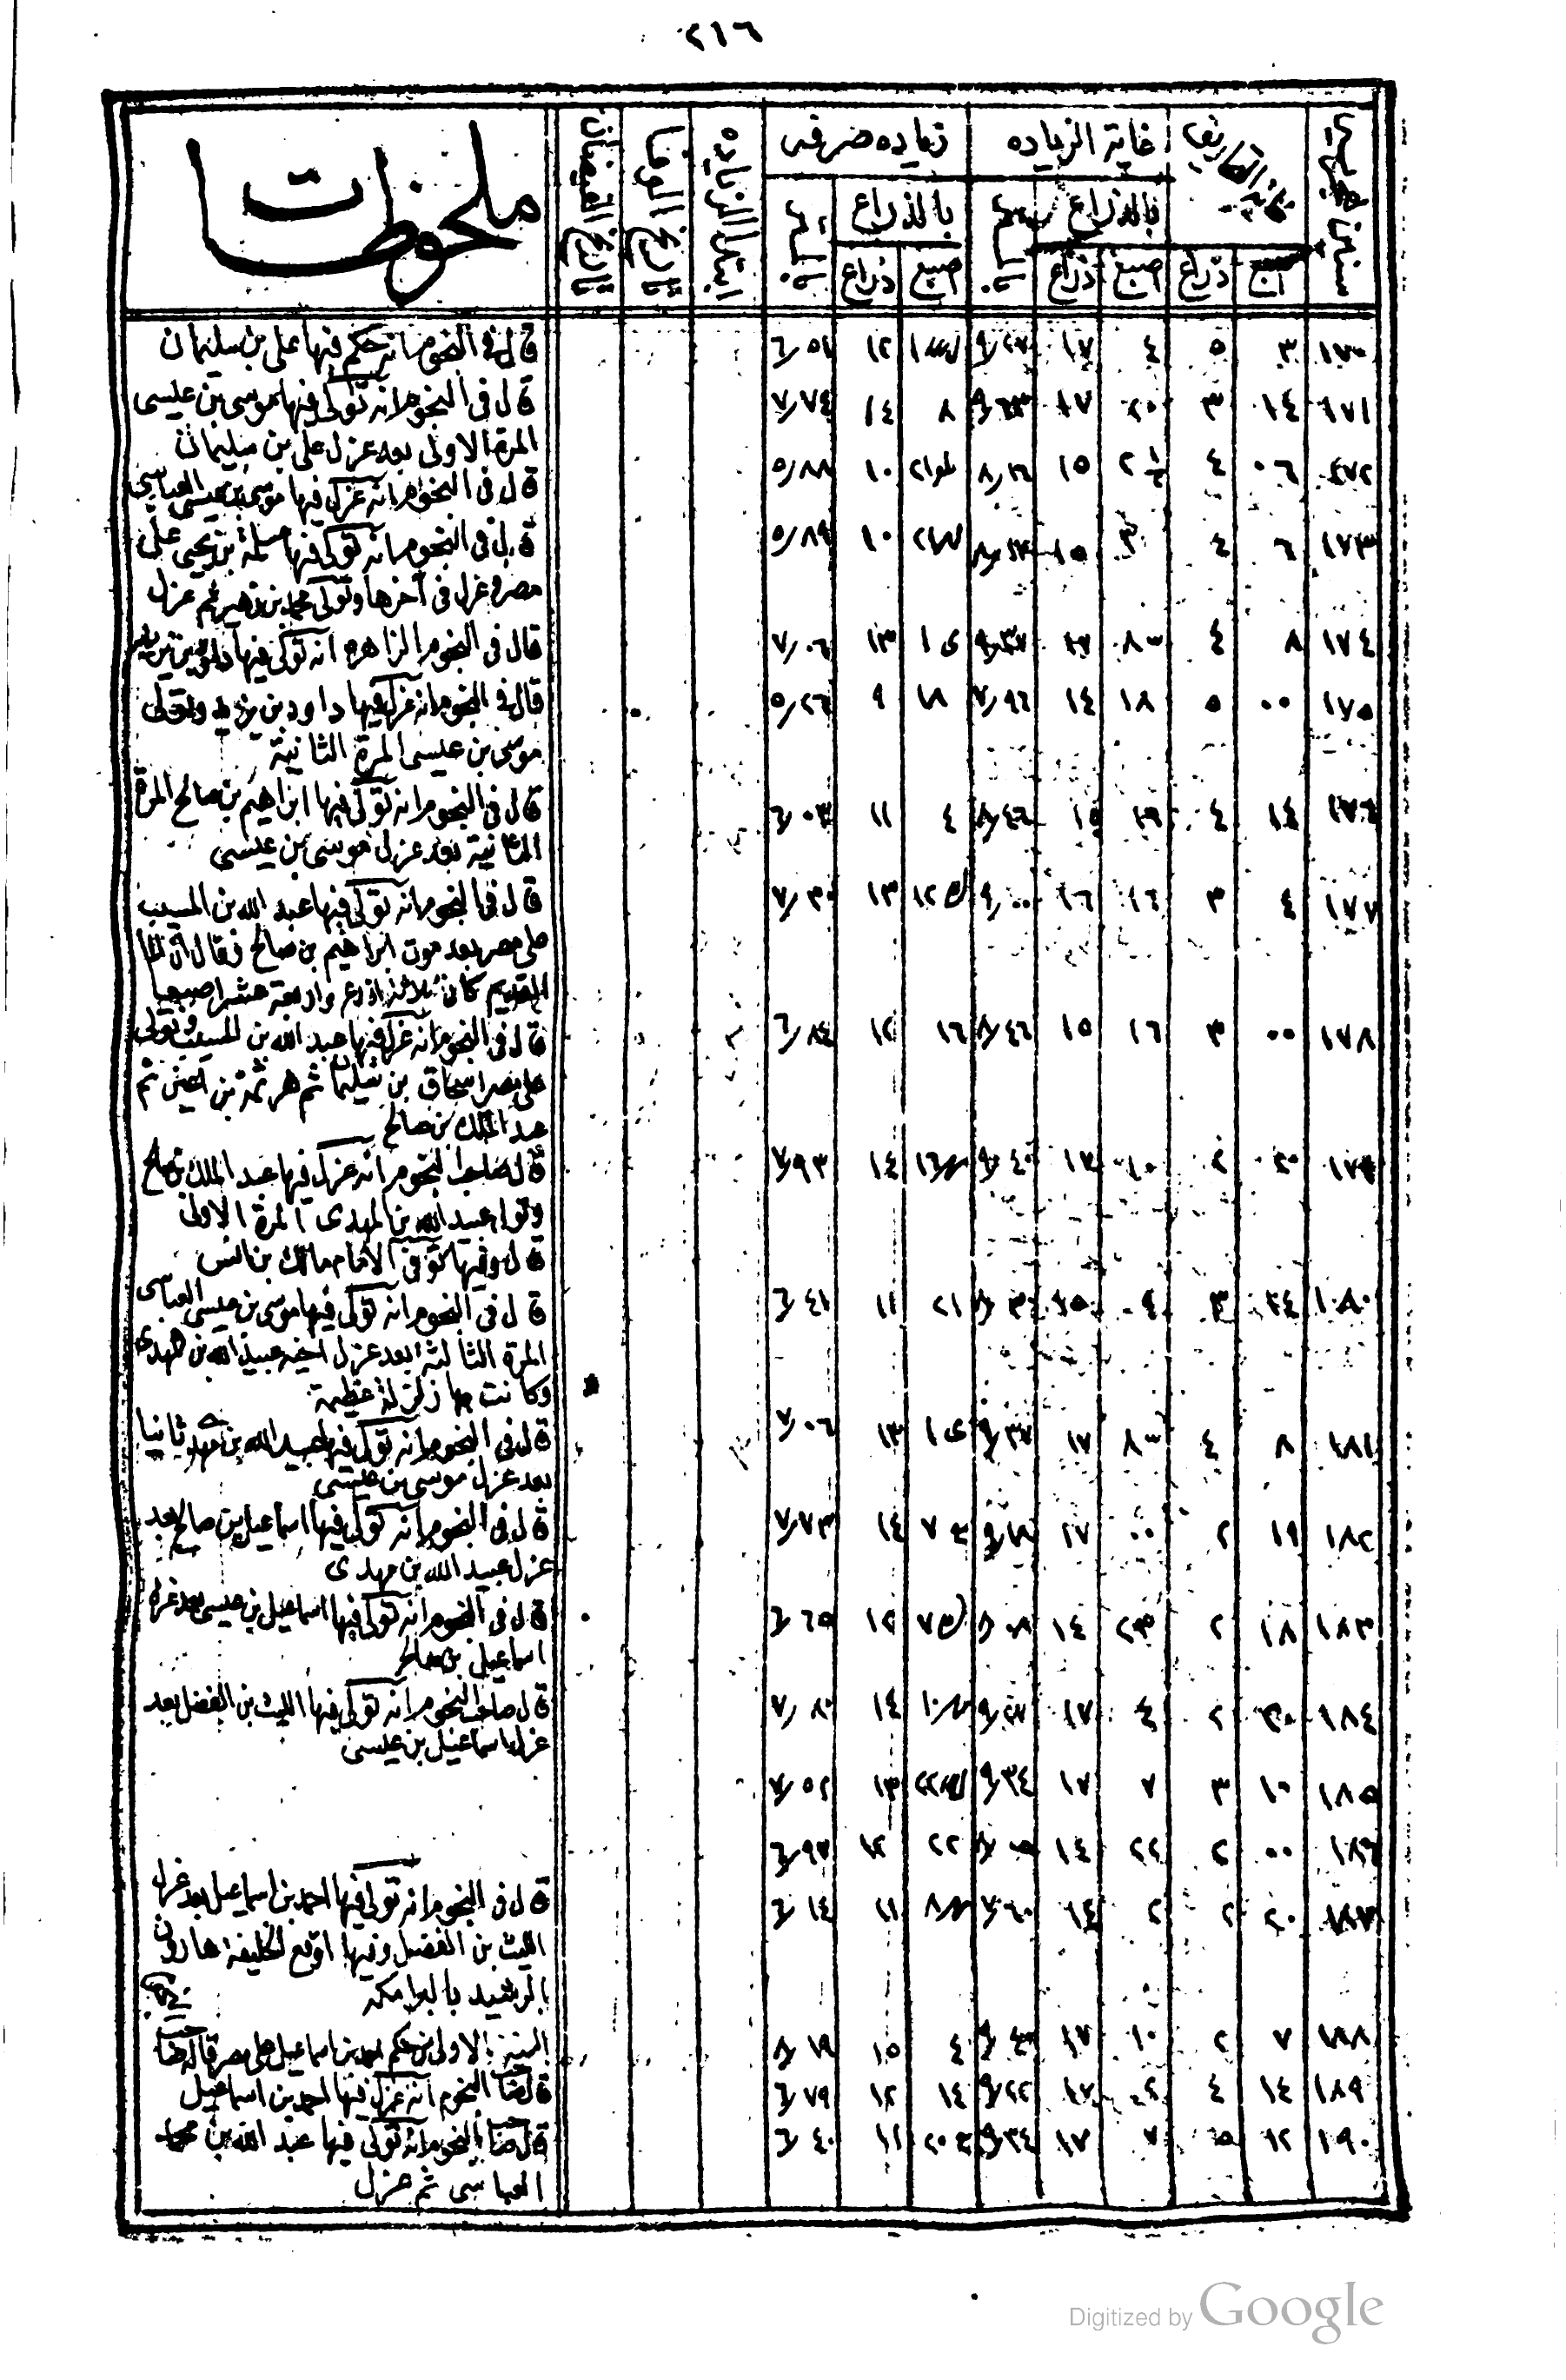 ٢١٦
سنين هجريه | غاية الزياده | زياده صرفه | ابتدا الزياده | تاريخ الوفا | تاريخ الفيضان | ملحوظات
بالذراع | بالذراع
اصبع | ذراع | اصبع | ذراع | اصبع | ذراع
١٧٠ | ٣ | ٥ | ٤ | ١٧ | ٩٫٢٧ | ١٢ | ٦٫٥١ | قال فى النجوم انه حكم فيها على بن سليمان
١٧١ | ١٤ | ٣ | ٢٠ | ١٧ | ٩٫٦٣ | ٨ | ١٤ | ٧٫٧٤ | قال فى النجوم انه تولى فيها موسى بن عيسى
المرة الاولى بعد عزل على بن سليمان
١٧٢ | ٠٦ | ٤ | ١٥ | ٨٫١٦ | ١٠ | ٥٫٨٨ | قال فى النجوم انه عزل فيها موسى بن عيسى العباسى
١٧٣ | ٦ | ٤ | ٣ | ١٥ | ٨٫١٧ | ١٠ | ٥٫٨٩ | قال فى النجوم انه تولى فيها مسلمة بن يحيى على
مصر وعزل فى آخرها وتولى محمد بن زهير ثم عزل
١٧٤ | ٨ | ٤ | ٨ | ١٧ | ٩٫٣٧ | ١٣ | ٧٫٠٦ | قال فى النجوم الزاهره انه تولى فيها داود بن يزيد
١٧٥ | ٠٠ | ٥ | ١٨ | ١٤ | ٧٫٩٦ | ١٨ | ٩ | ٥٫٢٦ | قال فى النجوم انه عزل فيها داود بن يزيد وتولى
موسى بن عيسى المرة الثانية
١٧٦ | ١٤ | ٤ | ١٦ | ١٥ | ٨٫٤٦ | ٤ | ١١ | ٦٫٠٣ | قال فى النجوم انه تولى فيها ابراهيم بن صالح المرة
الثانية بعد عزل موسى بن عيسى
١٧٧ | ٤ | ٣ | ١٦ | ١٦ | ٩٫٠٠ | ١٣ | ٧٫٣٠ | قال فى النجوم انه تولى فيها عبد الله بن المسيب
على مصر بعد موت ابراهيم بن صالح وقال ان الما
القديم كان ثلاثة اذرع واربعة عشر اصبعا
١٧٨ | ٠٠ | ٣ | ١٦ | ١٥ | ٨٫٤٦ | ١٦ | ١٢ | ٦٫٨٤ | قال فى النجوم انه عزل فيها عبد الله بن المسيب وتولى
على مصر اسحاق بن سليمان ثم هرثمة بن اعين ثم
عبد الملك بن صالح
١٧٩ | ٢٠ | ٢ | ١٠ | ١٧ | ٩٫٤٠ | ١٤ | ٧٫٩٣ | قال صاحب النجوم انه عزل فيها عبد الملك بن صالح
وتولى عبيد الله بن المهدى المرة الاولى
قال وفيها توفى الامام مالك بن انس
١٨٠ | ١٤ | ٣ | ٩ | ١٥ | ٨٫٣٠ | ٢١ | ١١ | ٦٫٤١ | قال فى النجوم انه تولى فيها موسى بن عيسى العباسى
المرة الثالثة بعد عزل اخيه عبيد الله بن المهدى
وكانت بها زلزلة عظيمة
١٨١ | ٨ | ٤ | ٨ | ١٧ | ٩٫٣٧ | ١٣ | ٧٫٠٦ | قال فى النجوم انه تولى فيها عبيد الله بن مهدى ثانيا
بعد عزل موسى بن عيسى
١٨٢ | ١٩ | ٢ | ٠٠ | ١٧ | ٩٫١٨ | ١٤ | ٧٫٧٣ | قال فى النجوم انه تولى فيها اسماعيل بن صالح بعد
عزل عبيد الله بن مهدى
١٨٣ | ١٨ | ٢ | ٢٣ | ١٤ | ٨٫٠٨ | ١٢ | ٦٫٦٥ | قال فى النجوم انه تولى فيها اسماعيل بن عيسى بعد عزل
اسماعيل بن صالح
١٨٤ | ٢٠ | ٢ | ٤ | ١٧ | ٩٫٢٧ | ١٤ | ٧٫٨٠ | قال صاحب النجوم انه تولى فيها الليث بن الفضل بعد
عزل اسماعيل بن عيسى
١٨٥ | ١٠ | ٣ | ٧ | ١٧ | ٩٫٣٤ | ١٣ | ٧٫٥٢
١٨٦ | ٠٠ | ٢ | ٢٢ | ١٤ | ٢٢ | ١٢ | ٦٫٩٧
١٨٧ | ٢٠ | ٢ | ٢ | ١٤ | ٧٫٦٠ | ١١ | ٦٫١٤ | قال فى النجوم انه تولى فيها احمد بن اسماعيل بعد عزل
الليث بن الفضل وفيها اوقع الخليفة هارون
الرشيد بالبرامكه
١٨٨ | ٧ | ٢ | ١٠ | ١٧ | ٩٫٤٠ | ٤ | ١٥ | ٨٫١٩ | السنة الاولى من حكم احمد بن اسماعيل على مصر
١٨٩ | ١٤ | ٤ | ٢ | ١٧ | ٩٫٢٢ | ١٤ | ١٢ | ٦٫٧٩ | قال صاحب النجوم انه عزل فيها احمد بن اسماعيل
١٩٠ | ١٢ | ٥ | ٧ | ١٧ | ٩٫٣٤ | ١١ | ٦٫٤٠ | قال صاحب النجوم انه تولى فيها عبد الله بن محمد
العباسى ثم عزل
Digitized by Google